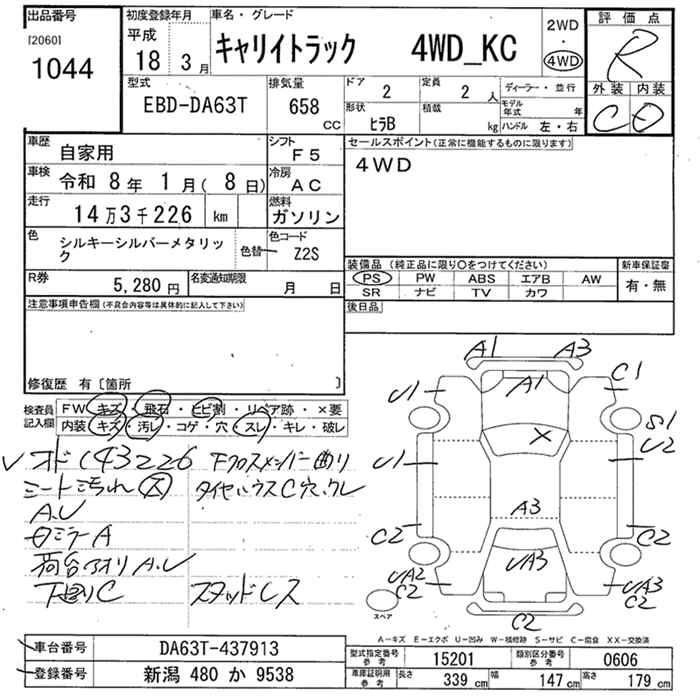 出品番号
[2060]
1044
初度登録年月
平成
18年 3月
車名・グレード
キャリイトラック 4WD_KC
2WD
・
4WD
評価点
R
外装 内装
C D
型式
EBD-DA63T
排気量
658
CC
ドア
2
定員
2 人
ディーラー・並行
形状
ヒラB
積載
kg
モデル年式 年
ハンドル 左・右
車歴
自家用
シフト
F5
車検
令和 8年 1月( 8日)
冷房
AC
走行
14万3千226 km
燃料
ガソリン
色
シルキーシルバーメタリック
色替
色コード
Z2S
R券
5,280円
名変通知期限
月 日
セールスポイント(正常に機能するものに限ります)
4WD
装備品 (純正品に限り○をつけてください)
PS PW ABS エアB AW
SR ナビ TV カワ
新車保証書
有・無
後日品
注意事項申告欄(不具合内容等は具体的に記入して下さい)
修復歴 有〔箇所 〕
検査員記入欄
FW キズ・飛石・ヒビ割・リペア跡・×要
内装 キズ・汚レ・コゲ・穴・スレ・キレ・破レ
オド143226 Fクロスメンバー曲り
シート汚れ大 タイヤハウスC穴、クレ
A.U
ロミラーA
荷台アオリA.U
下回りC スタッドレス
A1 A3
U1 A1 C1
S1
U1 U2
A3
C2 C2
UA2 UA3 UA3
C2 C2
C2
スペア
A-キズ E-エクボ U-凹み W-補修跡 S-サビ C-腐食 XX-交換済
車台番号
DA63T-437913
登録番号
新潟 480 か 9538
型式指定番号
参考
15201
類別区分番号
参考
0606
車庫証明用
参考
長さ 339 cm
幅 147 cm
高さ 179 cm